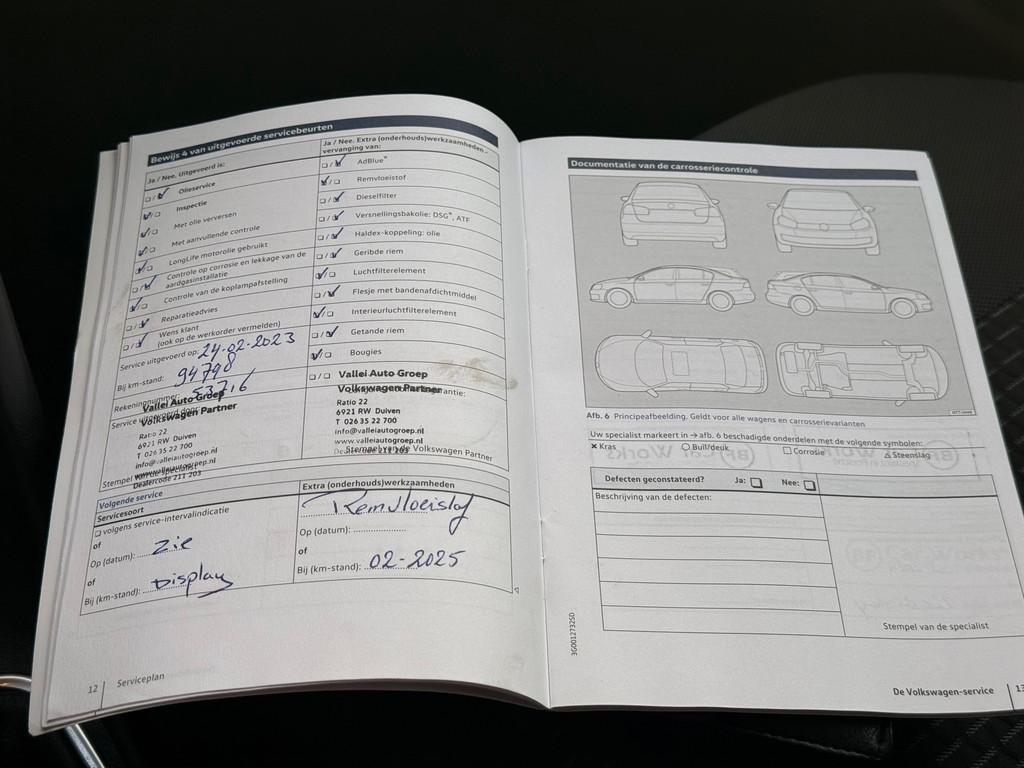 Bewijs 4 van uitgevoerde servicebeurten
Ja / Nee. Uitgevoerd is:
Olieservice
Inspectie
Met olie verversen
Met aanvullende controle
LongLife motorolie gebruikt
Controle op corrosie en lekkage van de
aardgasinstallatie
Controle van de koplampafstelling
Reparatieadvies
Wens klant
(ook op de werkorder vermelden)
Service uitgevoerd op: 24-02-2023
Bij km-stand: 94798
Rekeningnummer: 53716
Vallei Auto Groep
Volkswagen Partner
Ratio 22
6921 RW Duiven
T 026 35 22 700
info@valleiautogroep.nl
www.valleiautogroep.nl
Dealercode 211 203
Ja / Nee. Extra (onderhouds)werkzaamheden -
vervanging van:
AdBlue®
Remvloeistof
Dieselfilter
Versnellingsbakolie: DSG®, ATF
Haldex-koppeling: olie
Geribde riem
Luchtfilterelement
Flesje met bandenafdichtmiddel
Interieurluchtfilterelement
Getande riem
Bougies
Vallei Auto Groep
Volkswagen Partner
Ratio 22
6921 RW Duiven
T 026 35 22 700
info@valleiautogroep.nl
www.valleiautogroep.nl
Dealercode 211 203
Stempel van de Volkswagen Partner
Volgende service
Servicesoort
volgens service-intervalindicatie
of
Op (datum): Zie
of
Bij (km-stand): Display
Extra (onderhouds)werkzaamheden
Remvloeistof
Op (datum):
of
Bij (km-stand): 02-2025
12 Serviceplan
Documentatie van de carrosseriecontrole
Afb. 6 Principeafbeelding. Geldt voor alle wagens en carrosserievarianten
Uw specialist markeert in → afb. 6 beschadigde onderdelen met de volgende symbolen:
× Kras ○ Buil/deuk □ Corrosie △ Steenslag
Defecten geconstateerd? Ja: Nee:
Beschrijving van de defecten:
Stempel van de specialist
3G0012732SD
De Volkswagen-service 13